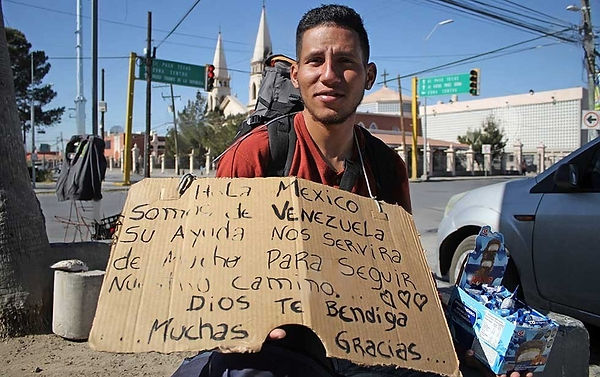 Hola Mexico
Somos de Venezuela
Su Ayuda Nos Servira
de Mucha Para Seguir
Nuestro Camino...
Dios Te Bendiga
...Muchas Gracias...